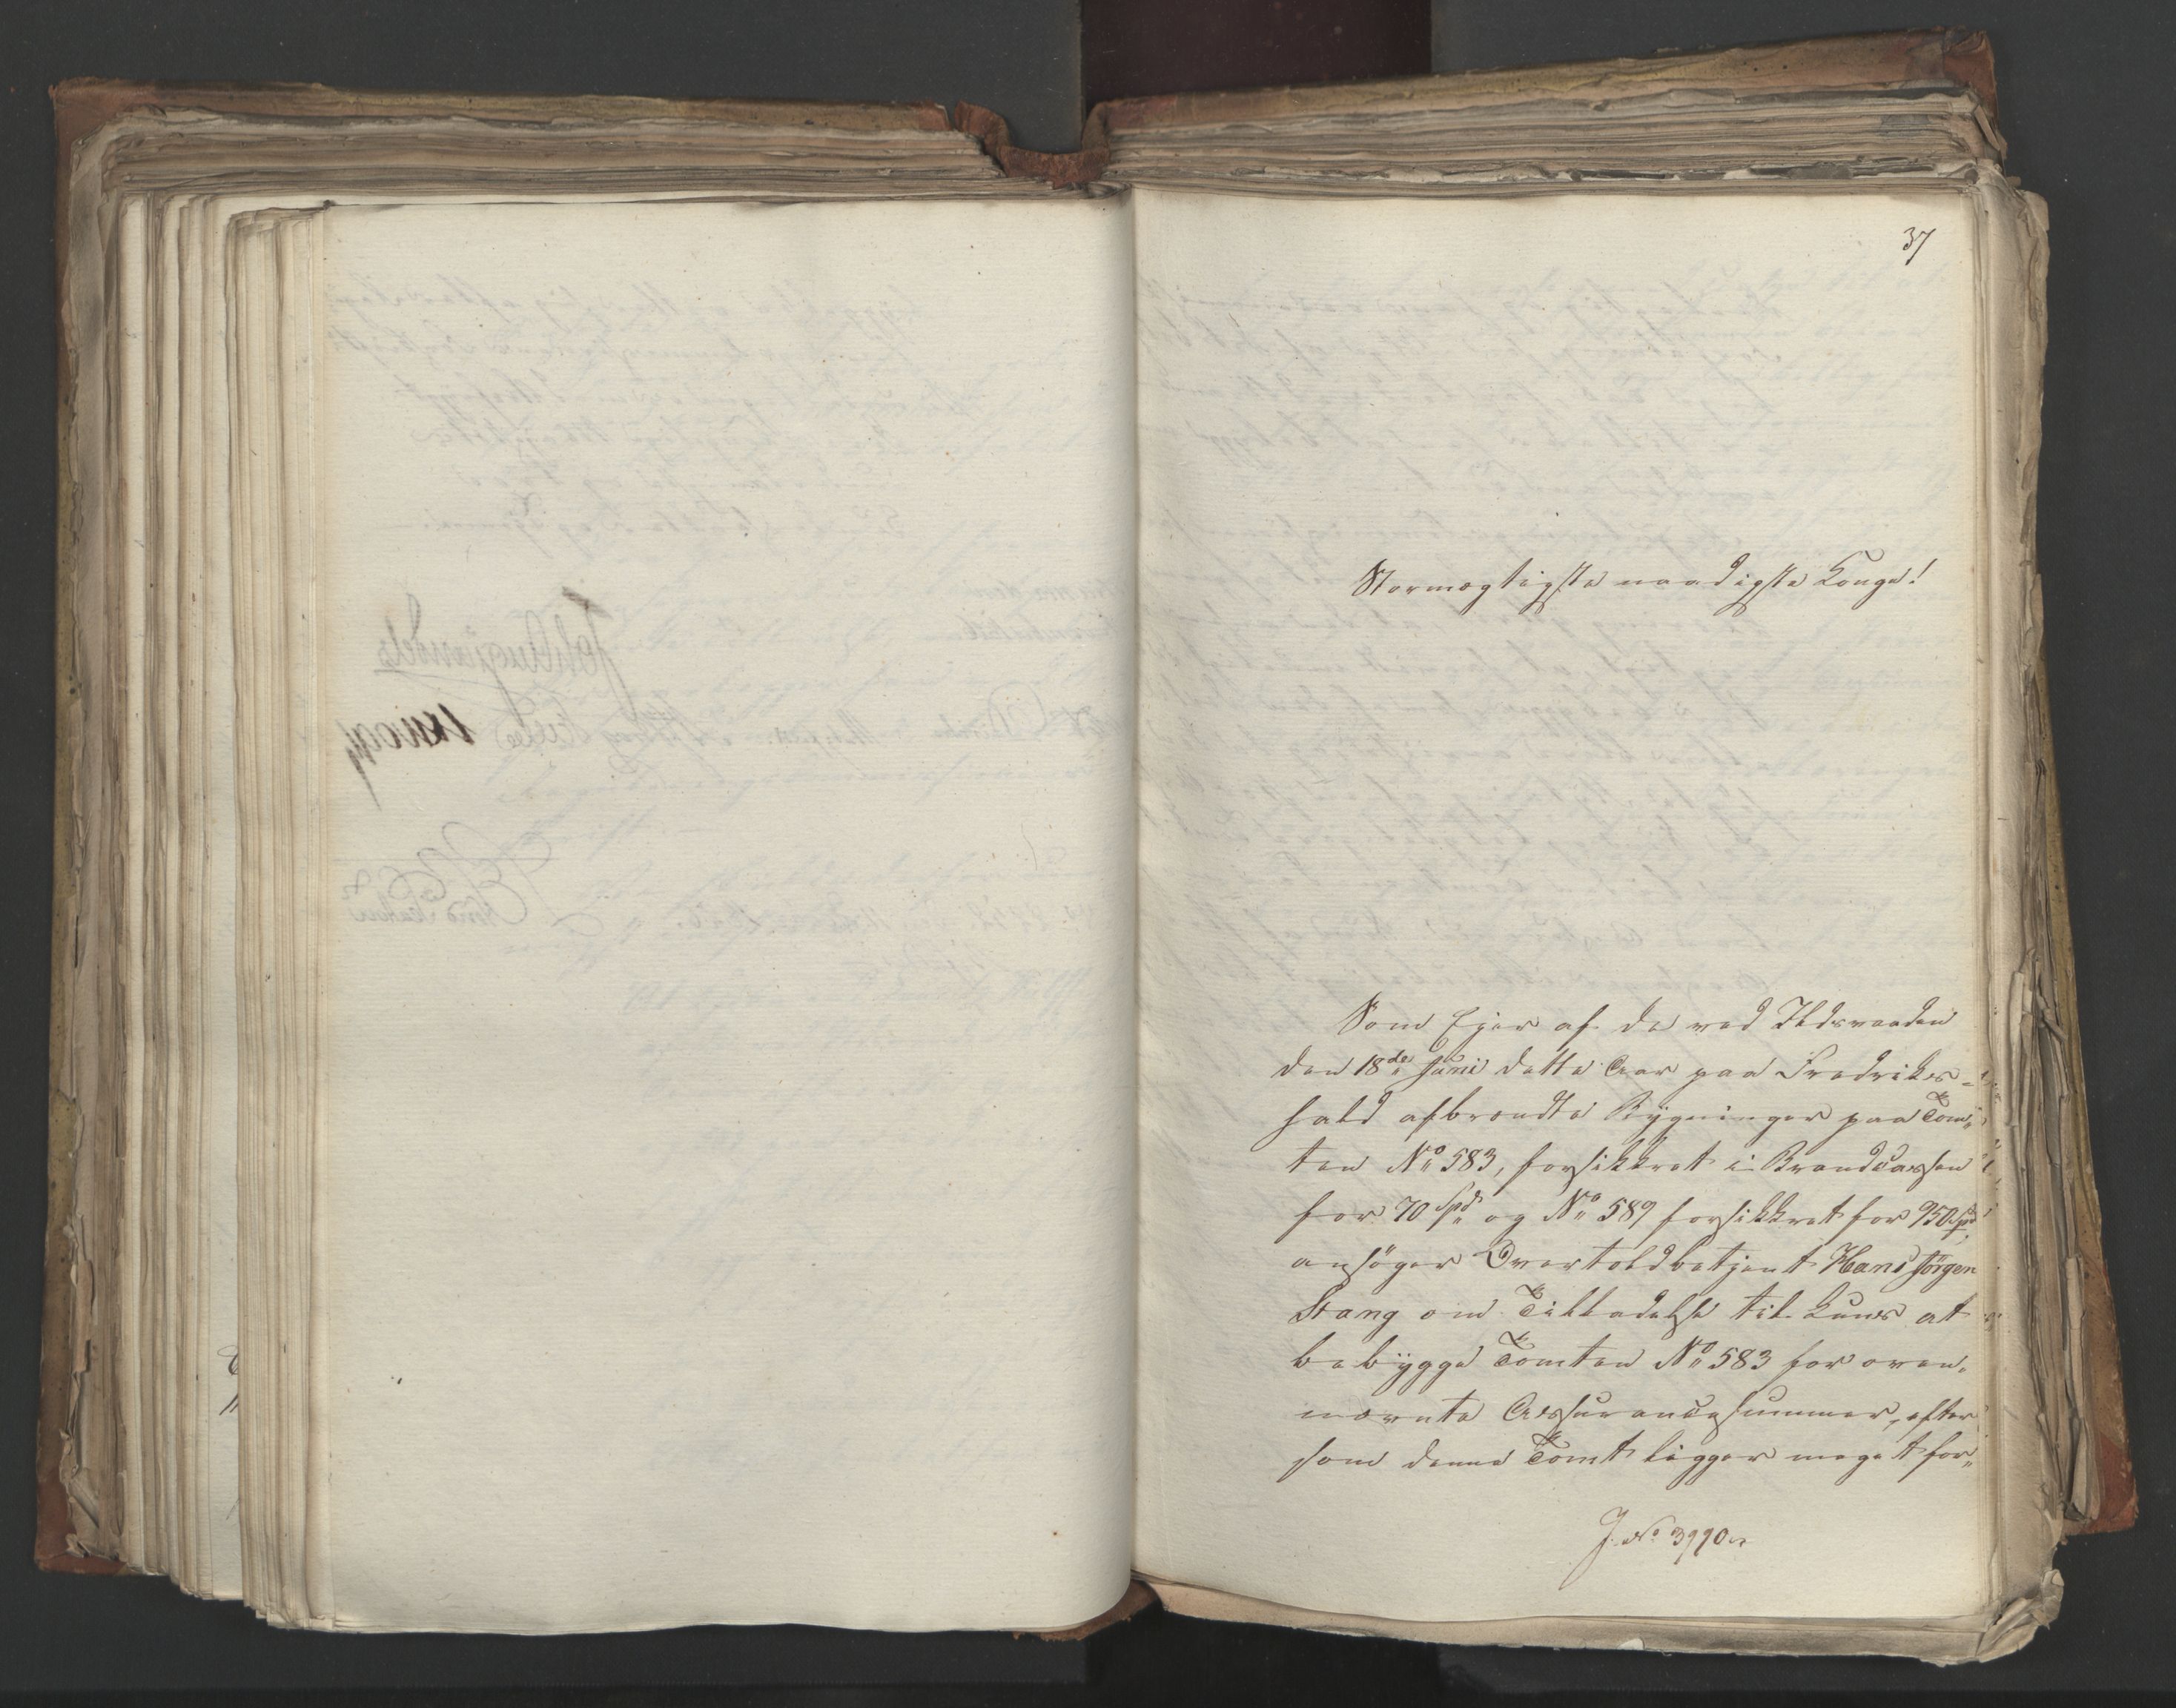 37
Stormægtigste naadigste Konge!
Som Ejer af de ved Ildsvaaden
den 18de Juni dette Aar paa Fredriks-
hald afbrændte Bygninger paa Tom„
ten No 583, forsikkret i Brandcassen
for 70 Spd og No 589 forsikkret for 950 Spd,
ansöger Overtoldbetjent Hans Jörgen
Stang om Tilladelse til kuns at
bebygge Tomten No 583 for oven„
nævnte Assurancesummer, efter
som denne Tomt ligger meget for„
J. No 3990